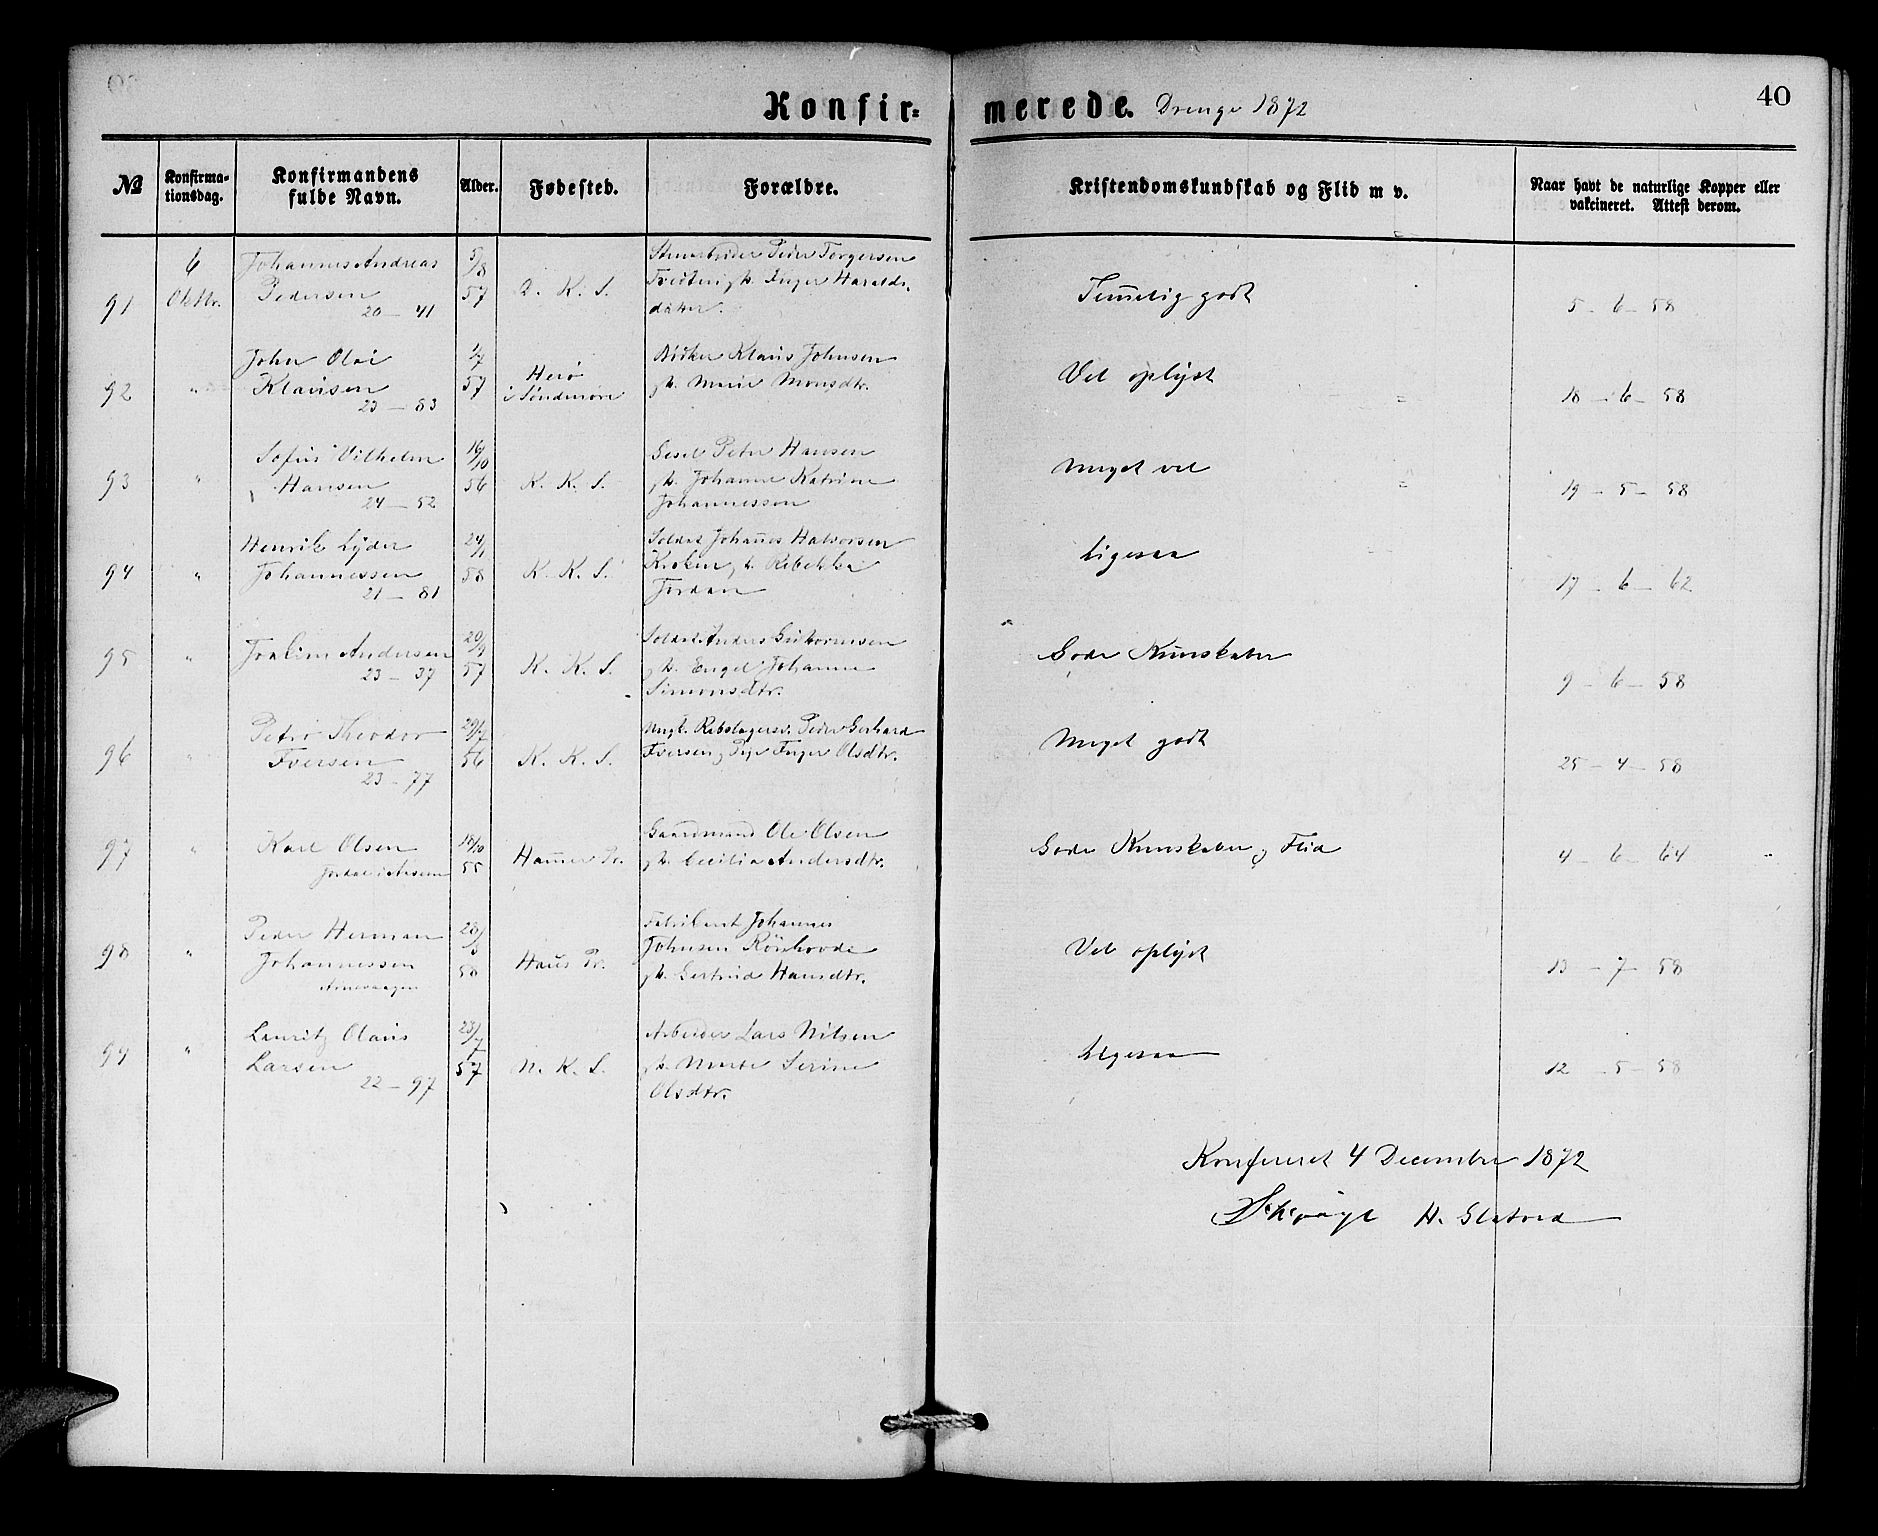 Konfirmerede. Drenge 1872
40
№ Konfirmationsdag. Konfirmandens fulde Navn. Alder. Fødested. Forældre. Kristendomskundskab og Flid m v. Naar havt de naturlige Kopper eller vakcineret. Attest derom.
91 6 Oktbr. Johannes Andreas Pedersen 20 – 41 5/8 57 D. K. S. Peder Torgersen Inger Haralds-datter. Temelig godt 5 – 6 – 58
92 " John Olai Klausen 23 – 83 57 Herø i Søndmøre Klaus Johnsen og h. Marie Monsdtr. Vel oplyst 18 – 6 – 58
93 " Sofus Vilhelm Hansen 24 – 52 16/10 56 K. K. S. Peter Hansen og h. Johanne Katrine Johannessen Meget vel 19 – 5 – 58
94 " Henrik Lyder Johannessen 21 – 81 24/1 58 K. K. S. Soldat Johañes Halvorsen Kroken og h. Rebekka Jordan Ligesaa 17 – 6 – 62
95 " Joakim Andersen 23 – 37 57 K. K. S. Soldat Anders Guttormsen og h. Engel Johanne Simonsdtr. Gode Kunskaber 9 – 6 – 58
96 " Petro Theodor Iversen 23 – 77 56 K. K. S. Ungk. Rebslagersv. Peder Gerhard Iversen og Pige Inger Olsdtr. Meget godt 25 – 4 – 58
97 " Karl Olsen 18/10 55 Hamer Pr. Gaardmand Ole Olsen og h. Cecilia Andersdtr. Gode Kunskaber og Flid 4 – 6 – 64
98 " Peder Herman Johannessen Arnevaagen 58 Haus Pr. Fabrikant Johannes Johnsen og h. Gertrud Hansdtr. Vel oplyst 13 – 7 – 58
99 " Lauritz Olaus Larsen 22 – 97 23/7 57 N. K. S. Arbeider Lars Nilsen og h. Marte Serine Olsdtr. Ligesaa 12 – 5 – 58
Konfereret 4 December 1872